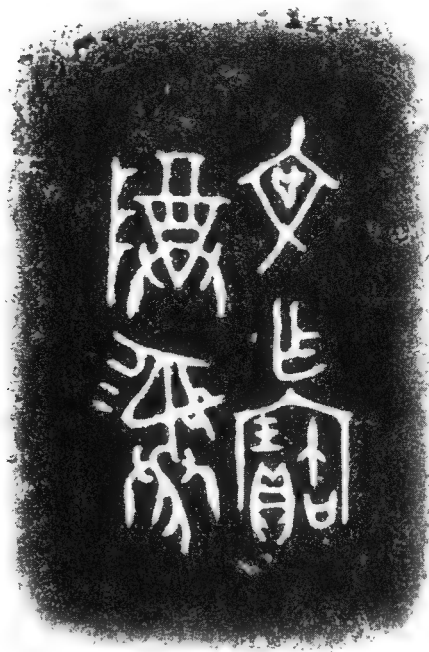 文乍寶
尊彝